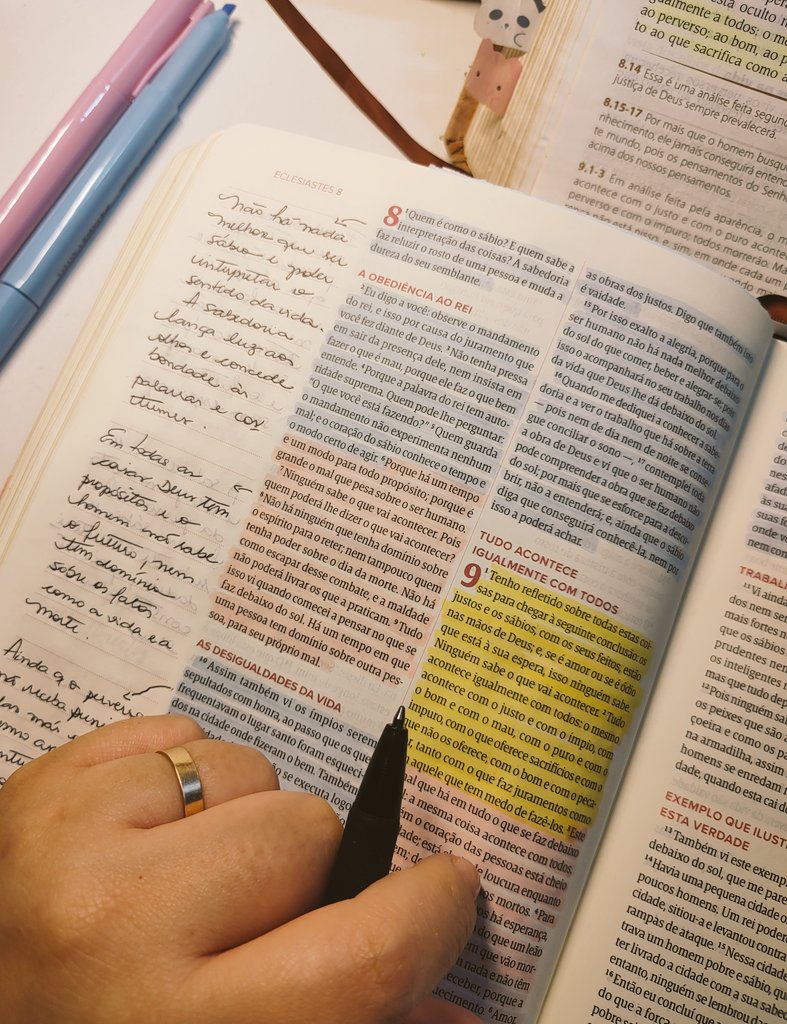 ECLESIASTES 8
não há nada
melhor que ser
sábio e poder
interpretar o
sentido da vida.
A sabedoria
lança luz aos
olhos e concede
bondade às
palavras e cos
tumes.
Em todas as
coisas Deus tem
propósitos e o
homem não sabe
o futuro, nem
tem domínio
sobre os fatos
como a vida e a
morte.
Ainda q o perverso
8 ¹Quem é como o sábio? E quem sabe a
interpretação das coisas? A sabedoria
faz reluzir o rosto de uma pessoa e muda a
dureza do seu semblante.
A OBEDIÊNCIA AO REI
²Eu digo a você: observe o mandamento
do rei, e isso por causa do juramento que
você fez diante de Deus. ³Não tenha pressa
em sair da presença dele, nem insista em
fazer o que é mau, porque ele faz o que bem
entende. ⁴Porque a palavra do rei tem auto-
ridade suprema. Quem pode lhe perguntar:
"O que você está fazendo?" ⁵Quem guarda
o mandamento não experimenta nenhum
mal; e o coração do sábio conhece o tempo e
o modo certo de agir. ⁶Porque há um tempo
e um modo para todo propósito; porque é
grande o mal que pesa sobre o ser humano.
⁷Ninguém sabe o que vai acontecer. Pois
quem poderá lhe dizer o que vai acontecer?
⁸Não há ninguém que tenha domínio sobre
o espírito para o reter, nem tampouco quem
tenha poder sobre o dia da morte. Não há
como escapar desse combate, e a maldade
não poderá livrar os que a praticam. ⁹Tudo
isso vi quando comecei a pensar no que se
faz debaixo do sol. Há um tempo em que
uma pessoa tem domínio sobre outra pes-
soa, para seu próprio mal.
AS DESIGUALDADES DA VIDA
¹⁰Assim também vi os ímpios serem
sepultados com honra, ao passo que os que
frequentavam o lugar santo foram esqueci-
dos na cidade onde fizeram o bem. Também
se executa logo
as obras dos justos. Digo que também isto
é vaidade.
¹⁵Por isso exalto a alegria, porque para o
ser humano não há nada melhor debaixo
do sol do que comer, beber e alegrar-se; pois
isso o acompanhará no seu trabalho nos dias
da vida que Deus lhe dá debaixo do sol.
¹⁶Quando me dediquei a conhecer a sabe-
doria e a ver o trabalho que há sobre a terra
— pois nem de dia nem de noite se conse-
gue conciliar o sono —, ¹⁷contemplei toda
a obra de Deus e vi que o ser humano não
pode compreender a obra que se faz debaixo
do sol; por mais que se esforce para a desco-
brir, não a entenderá; e, ainda que o sábio
diga que conseguirá conhecê-la, nem por
isso a poderá achar.
TUDO ACONTECE
IGUALMENTE COM TODOS
9 ¹Tenho refletido sobre todas estas coi-
sas para chegar à seguinte conclusão: os
justos e os sábios, com os seus feitos, estão
nas mãos de Deus, e, se é amor ou se é ódio
que está à sua espera, isso ninguém sabe.
Ninguém sabe o que vai acontecer. ²Tudo
acontece igualmente com todos: o mesmo
acontece com o justo e com o ímpio, com
o bom e com o mau, com o puro e com o
impuro, com o que oferece sacrifícios e com o
que não os oferece, com o bom e com o peca-
, tanto com o que faz juramentos como
aquele que tem medo de fazê-los. ³Este
mal que há em tudo o que se faz debaixo
: a mesma coisa acontece com todos.
em o coração das pessoas está cheio
dade; está de loucura enquanto
os mortos. ⁴Para
os há esperança,
do que um leão
em que vão mor-
nada e não têm
receber, porque a
uecimento. ⁶Amor,
está oculto n
igualmente a todos: o m
ao perverso; ao bom, ao p
to ao que sacrifica como a
8.14 Essa é uma análise feita segund
justiça de Deus sempre prevalecerá.
8.15-17 Por mais que o homem busqu
nhecimento, ele jamais conseguirá enten
te mundo, pois os pensamentos do Senh
acima dos nossos pensamentos.
9.1-3 Em análise feita pela aparência, o m
acontece com o justo e com o puro aconte
perverso e com o impuro: todos morrerão. Ma
TRABAL
¹¹Vi ainda
dos nem se
mais fortes n
que os sábios
prudentes nem
os inteligentes
mas que tudo dep
¹²Pois ninguém sa
os peixes que são
çoeira e como os p
na armadilha, assim
homens se enredam n
dade, quando esta cai d
EXEMPLO QUE ILUST
ESTA VERDADE
¹³Também vi este exemp
debaixo do sol, que me pare
¹⁴Havia uma pequena cidade o
poucos homens. Um rei podero
cidade, sitiou-a e levantou contra
rampas de ataque. ¹⁵Nessa cidade
trava um homem pobre e sábio, qu
ter livrado a cidade com a sua sabed
entanto, ninguém se lembrou da
¹⁶Então eu concluí que a
do que a força